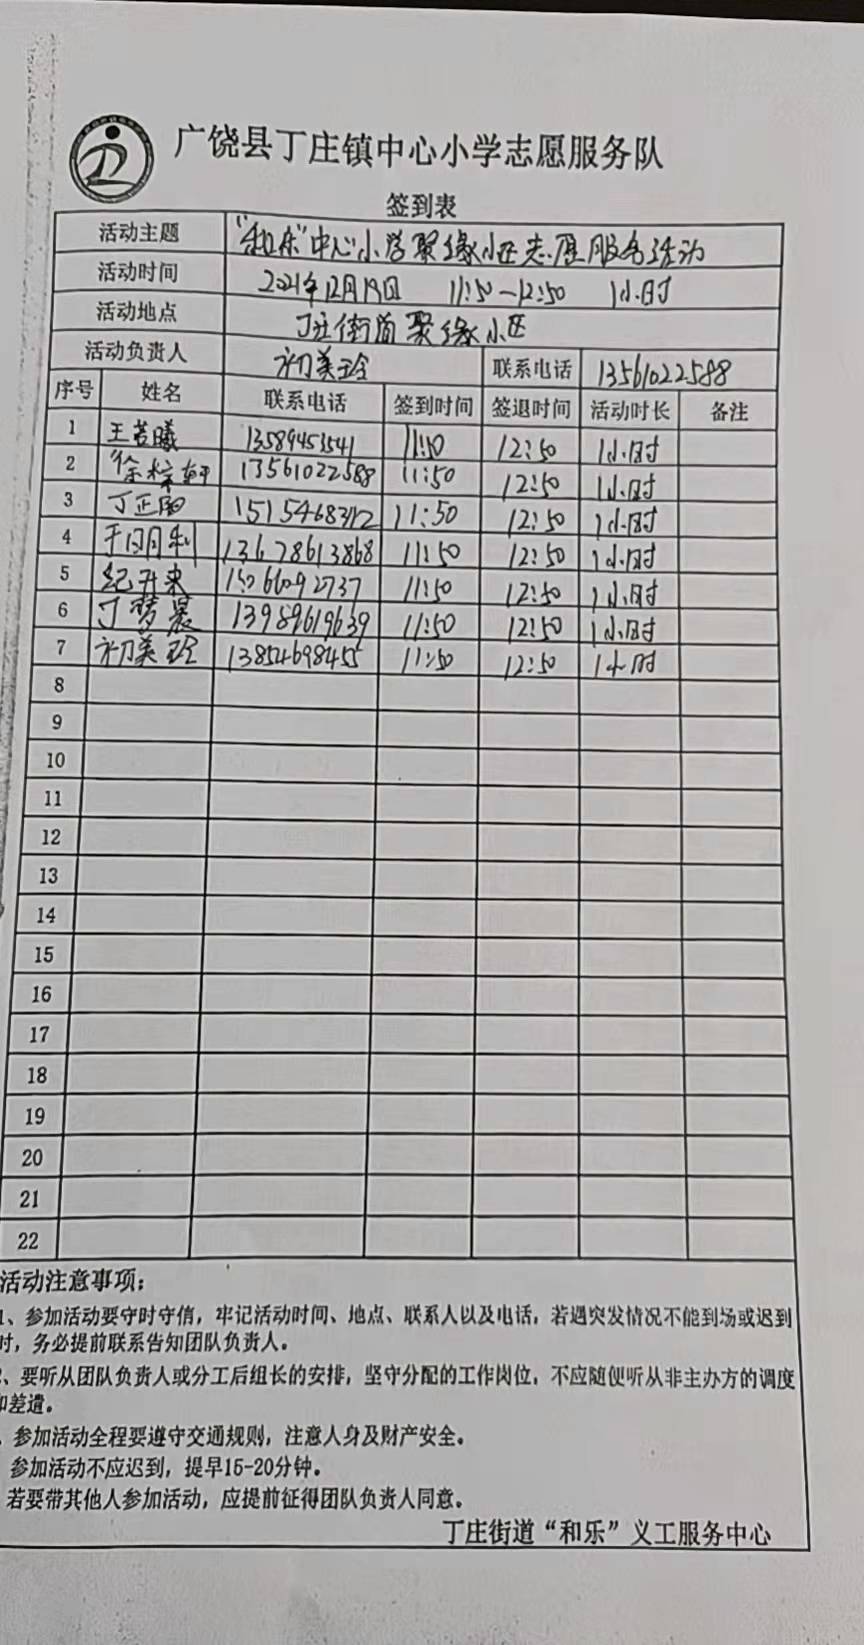 广饶县丁庄镇中心小学志愿服务队
签到表
活动主题 "和乐"中心小学聚缘小区志愿服务活动
活动时间 2021年12月19日 11:50—12:50 1小时
活动地点 丁庄街道聚缘小区
活动负责人 初美玲 联系电话 13561022588
序号 姓名 联系电话 签到时间 签退时间 活动时长 备注
1 王若曦 13589453541 11:50 12:50 1小时
2 徐梓轩 13561022588 11:50 12:50 1小时
3 丁正阳 11:50 12:50 1小时
4 于明利 13678613868 11:50 12:50 1小时
5 纪开来 15066092737 11:50 12:50 1小时
6 丁梦晨 13989619639 11:50 12:50 1小时
7 初美玲 13854698455 11:50 12:50 1小时
8
9
10
11
12
13
14
15
16
17
18
19
20
21
22
活动注意事项:
1、参加活动要守时守信,牢记活动时间、地点、联系人以及电话,若遇突发情况不能到场或迟到
时,务必提前联系告知团队负责人。
、要听从团队负责人或分工后组长的安排,坚守分配的工作岗位,不应随便听从非主办方的调度
和差遣。
参加活动全程要遵守交通规则,注意人身及财产安全。
参加活动不应迟到,提早15-20分钟。
若要带其他人参加活动,应提前征得团队负责人同意。
丁庄街道“和乐”义工服务中心